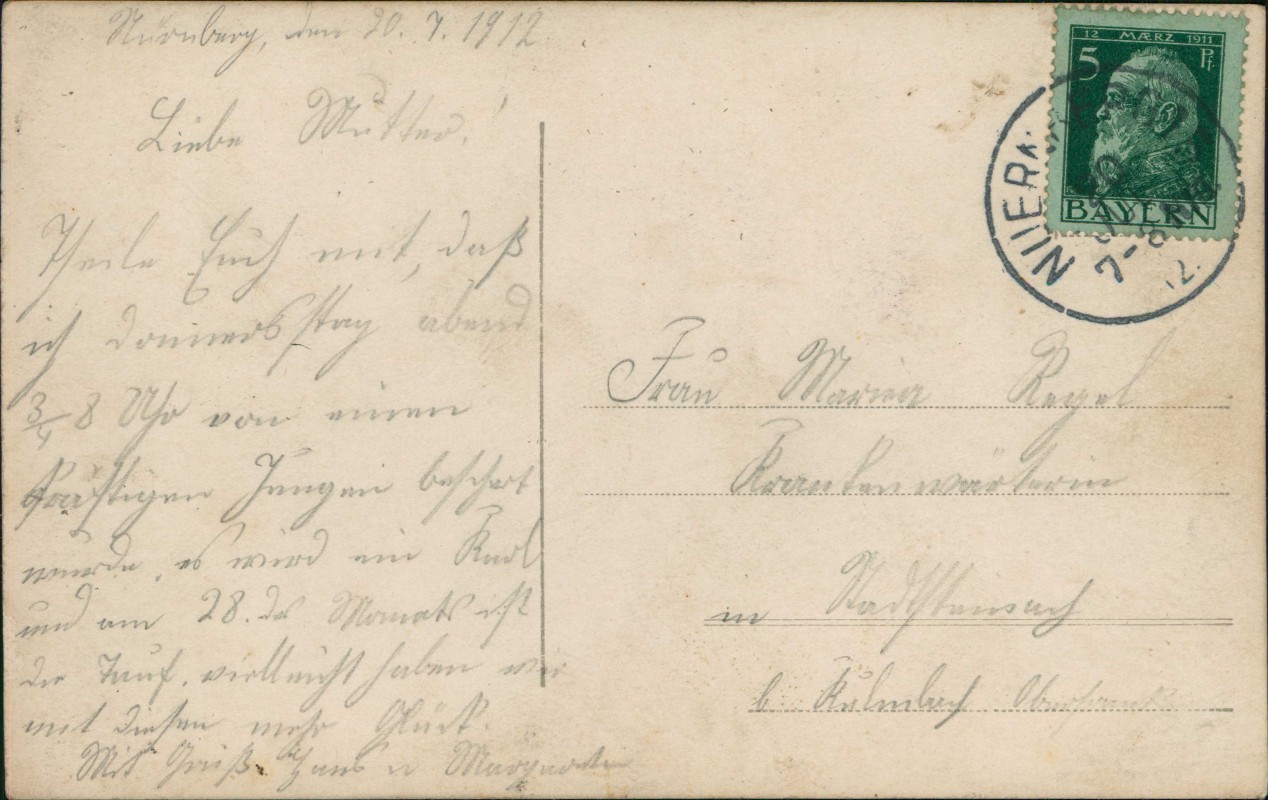 Nürnberg, den 20. 7. 1912
Liebe Mutter!
Theile Euch mit, daß
ich Donnersstag abend
3/4 8 Uhr von einen
kräftigen Jungen beschert
wurde, es wird ein Karl
und am 28. des Monats ist
die Tauf. vielleicht haben wir
mit diesen mehr Glück.
Mit Gruß Hans u Margareta
12 MÆRZ 1911
5 Pf.
BAYERN
NUERNBERG
7-8
12.
Frau Maria Regel
Krankenwärterin
in Stadtsteinach
b. Kulmbach Oberfrank